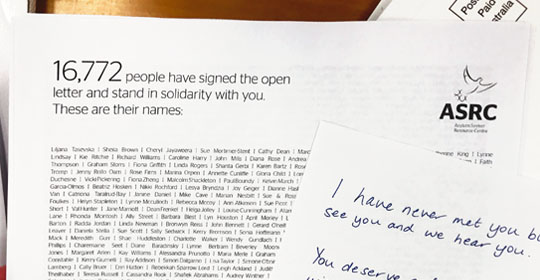 16,772 people have signed the open
letter and stand in solidarity with you.
These are their names:
Post
Paid
Australia
ASRC
Asylum Seeker
Resource Centre
Liljana Tasevska | Sheila Brown | Cheryl Jayaweera | Sue Mortimer-Steel | Cathy Dean | Marc
Lindsay | Kae Ritchie | Richard Williams | Caroline Harry | John Mills | Diana Rose | Andrea
Thompson | Graham Storrs | Fiona Griffith | Linda Rogers | Shanta Gerbi | Karen Bartz | Rosy
Tremp | Jenny Rollo Owin | Rose Fermi | Marina Orpen | Annette Cunliffe | Gloria Child | Lori
Duchesne | Vicki Pickering | Fiona Zheng | Malcolm Shackleton | Paul Boundy | Kelvin March |
Garcia-Olmos | Beatriz Hosken | Nikki Rochford | Lesya Bryndzia | Joy Geiger | Dionne
Van | Catriona | Janine Daniel | Mike Cave | Marian Nesbitt | Sue &
Foulkes | Helyn Stapleton | Lynne McCulloch | Rebecca Mcroy | Ann Atkinson | Sue Pinot
Short | Val Hunter | Jane Marriott | Dean Frenkel | Helga Jolov | Louise Cunningham | Alan
Lane | Rhonda McIntosh | Ally Street | Barbara Blest | Lyn Hoedon | April Morley | L
Barton | Radda Jordan | Linda Newman | Bronwyn Reiss | John Bennett | Gerard Cheal
Leaver | Daniela Stella | Sue Scott | Sally Sedwick | Kerry Brennan | Sonia Hoffmann
Mack | Meredith Gurr | Huddleston | Charlotte Walker | Wendy Gundlach |
Phillips | Charmayne Seet | Diane Baradinsky | Lynne Berkson | Beverley Moors
Jones | Margaret Allen | Kay Williams | Alessandra Prunotto | Maria Merle | Graham
Constable | Kerry Gumrell | Kay Addison | Simon Dalgarno | Lisa Taylor | Simone
Lamberg | Cally Bruer | Deri Hadler | Rebekkah Sparrow-Lord | Leigh Ackland | Judit
Theilhaber | Teresa Russell | Cassandra Roark | Shafek Abrahams | Audrey Wohlner
King | Lynne
Faith
I have never met you b
see you and we hear you.
You deserve